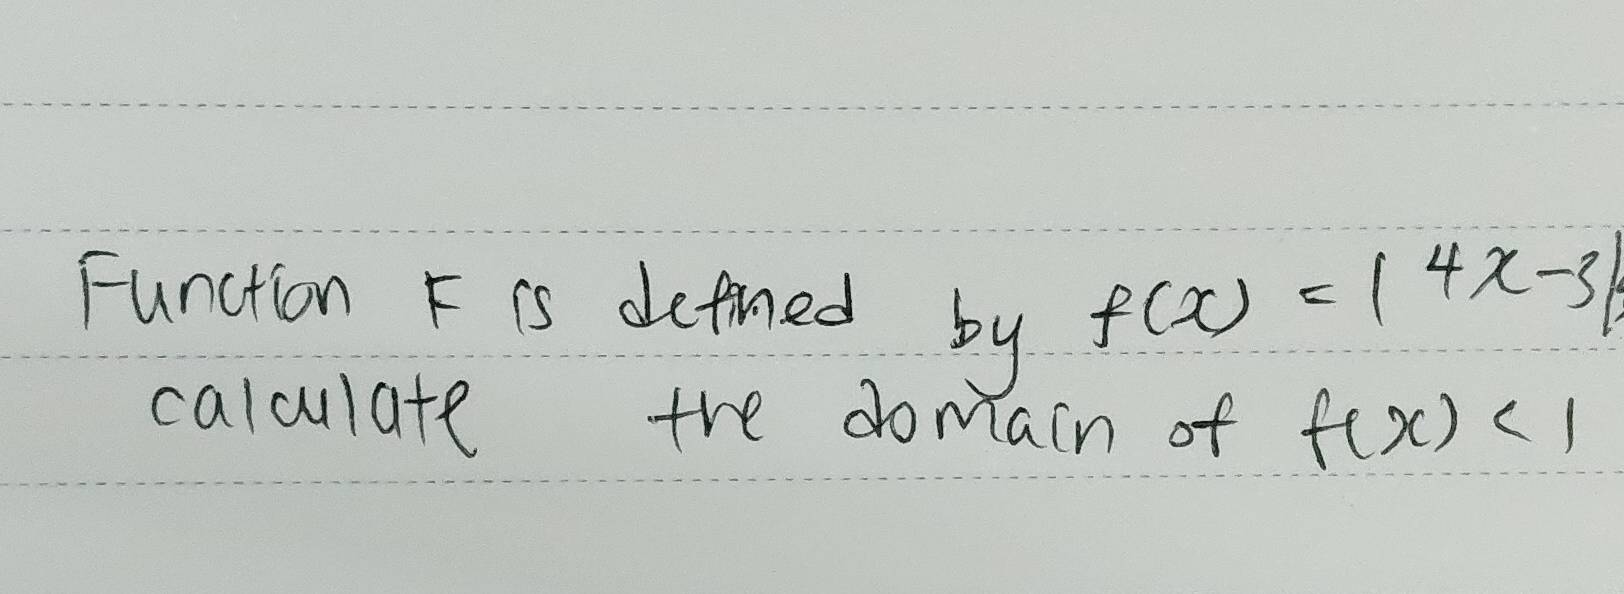 Function F is defined by f(x) = |4x-3|
calculate the domain of f(x) < 1